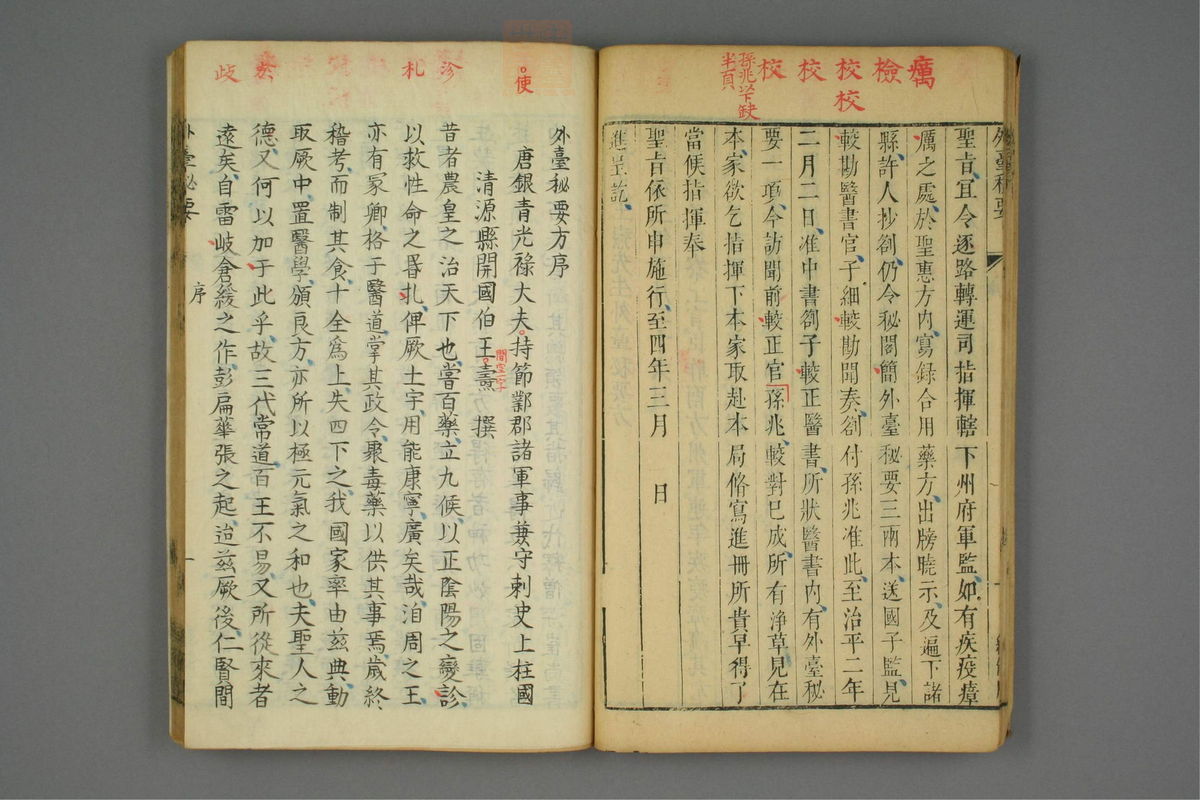 癘
檢
校
校
校
校
孫兆以下缺
半頁
聖旨宜令逐路轉運司指揮轄下州府軍監如有疾疫瘴
厲之處於聖惠方内寫録合用藥方出牓曉示及遍下諸
縣許人抄劄仍令秘閣簡外臺秘要三兩本送國子監見
較勘醫書官子細較勘聞奏劄付孫兆准此至治平二年
二月二日准中書劄子較正醫書所狀醫書内有外臺秘
要一項今訪聞前較正官孫兆較對已成所有淨草見在
本家欲乞指揮下本家取赴本局脩寫進冊所貴早得了
當候指揮奉
聖旨依所申施行至四年三月　日
進呈訖
使
沴
札
歧
外臺秘要方序
唐銀青光祿大夫持節鄴郡諸軍事兼守刺史上柱國
清源縣開國伯王燾　撰
間空一字
昔者農皇之治天下也嘗百藥立九候以正陰陽之變診
以救性命之昬扎俾厥土宇用能康寧廣矣哉洎周之王
亦有冢卿格于醫道掌其政令聚毒藥以供其事焉歲終
稽考而制其食十全爲上失四下之我國家率由茲典動
取厥中置醫學頒良方亦所以極元氣之和也夫聖人之
德又何以加于此乎故三代常道百王不易又所從來者
遠矣自雷岐倉緩之作彭扁華張之起迨茲厥後仁賢間
外臺秘要
序
一